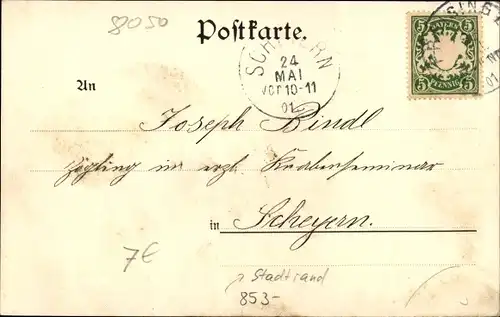 8050
Postkarte.
SCHEYERN
24
MAI
Vor 10-11
01.
BAYERN
5 5
5 PFENNIG 5
SING
01
An
Joseph Bindl
Zögling im erzb. Knabenseminar
in Scheyern.
7€
Stadtrand
853-